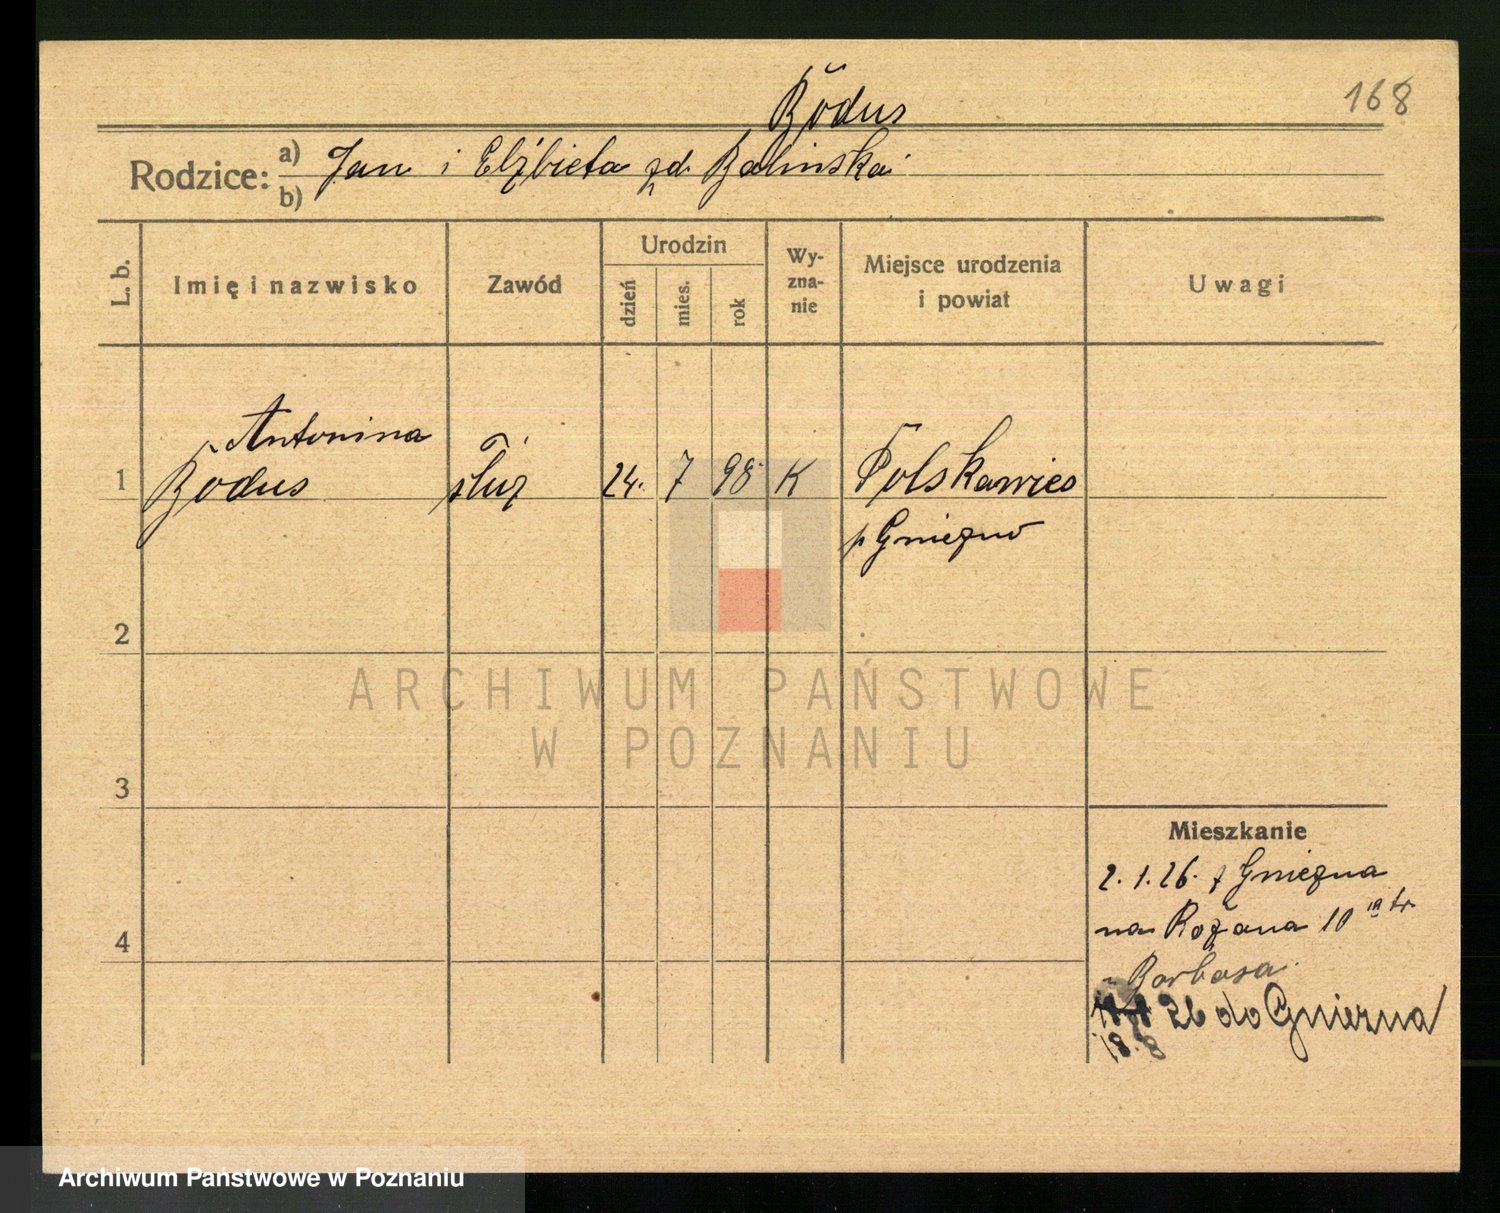 168
Bödus
Rodzice: a) Jan i Elżbieta zd. Balinska
b)
L. b.
Imię i nazwisko
Zawód
Urodzin
dzień
mies.
rok
Wy-
zna-
nie
Miejsce urodzenia
i powiat
Uwagi
Antonina
1 Bödus służ 24. 7 98 K Polskawies
p Gniezno
2
3
4
ARCHIWUM PAŃSTWOWE
W POZNANIU
Mieszkanie
2.1.26. z Gniezna
na Rożana 10
Barbasa
26 do Gniezna
18.8
Archiwum Państwowe w Poznaniu